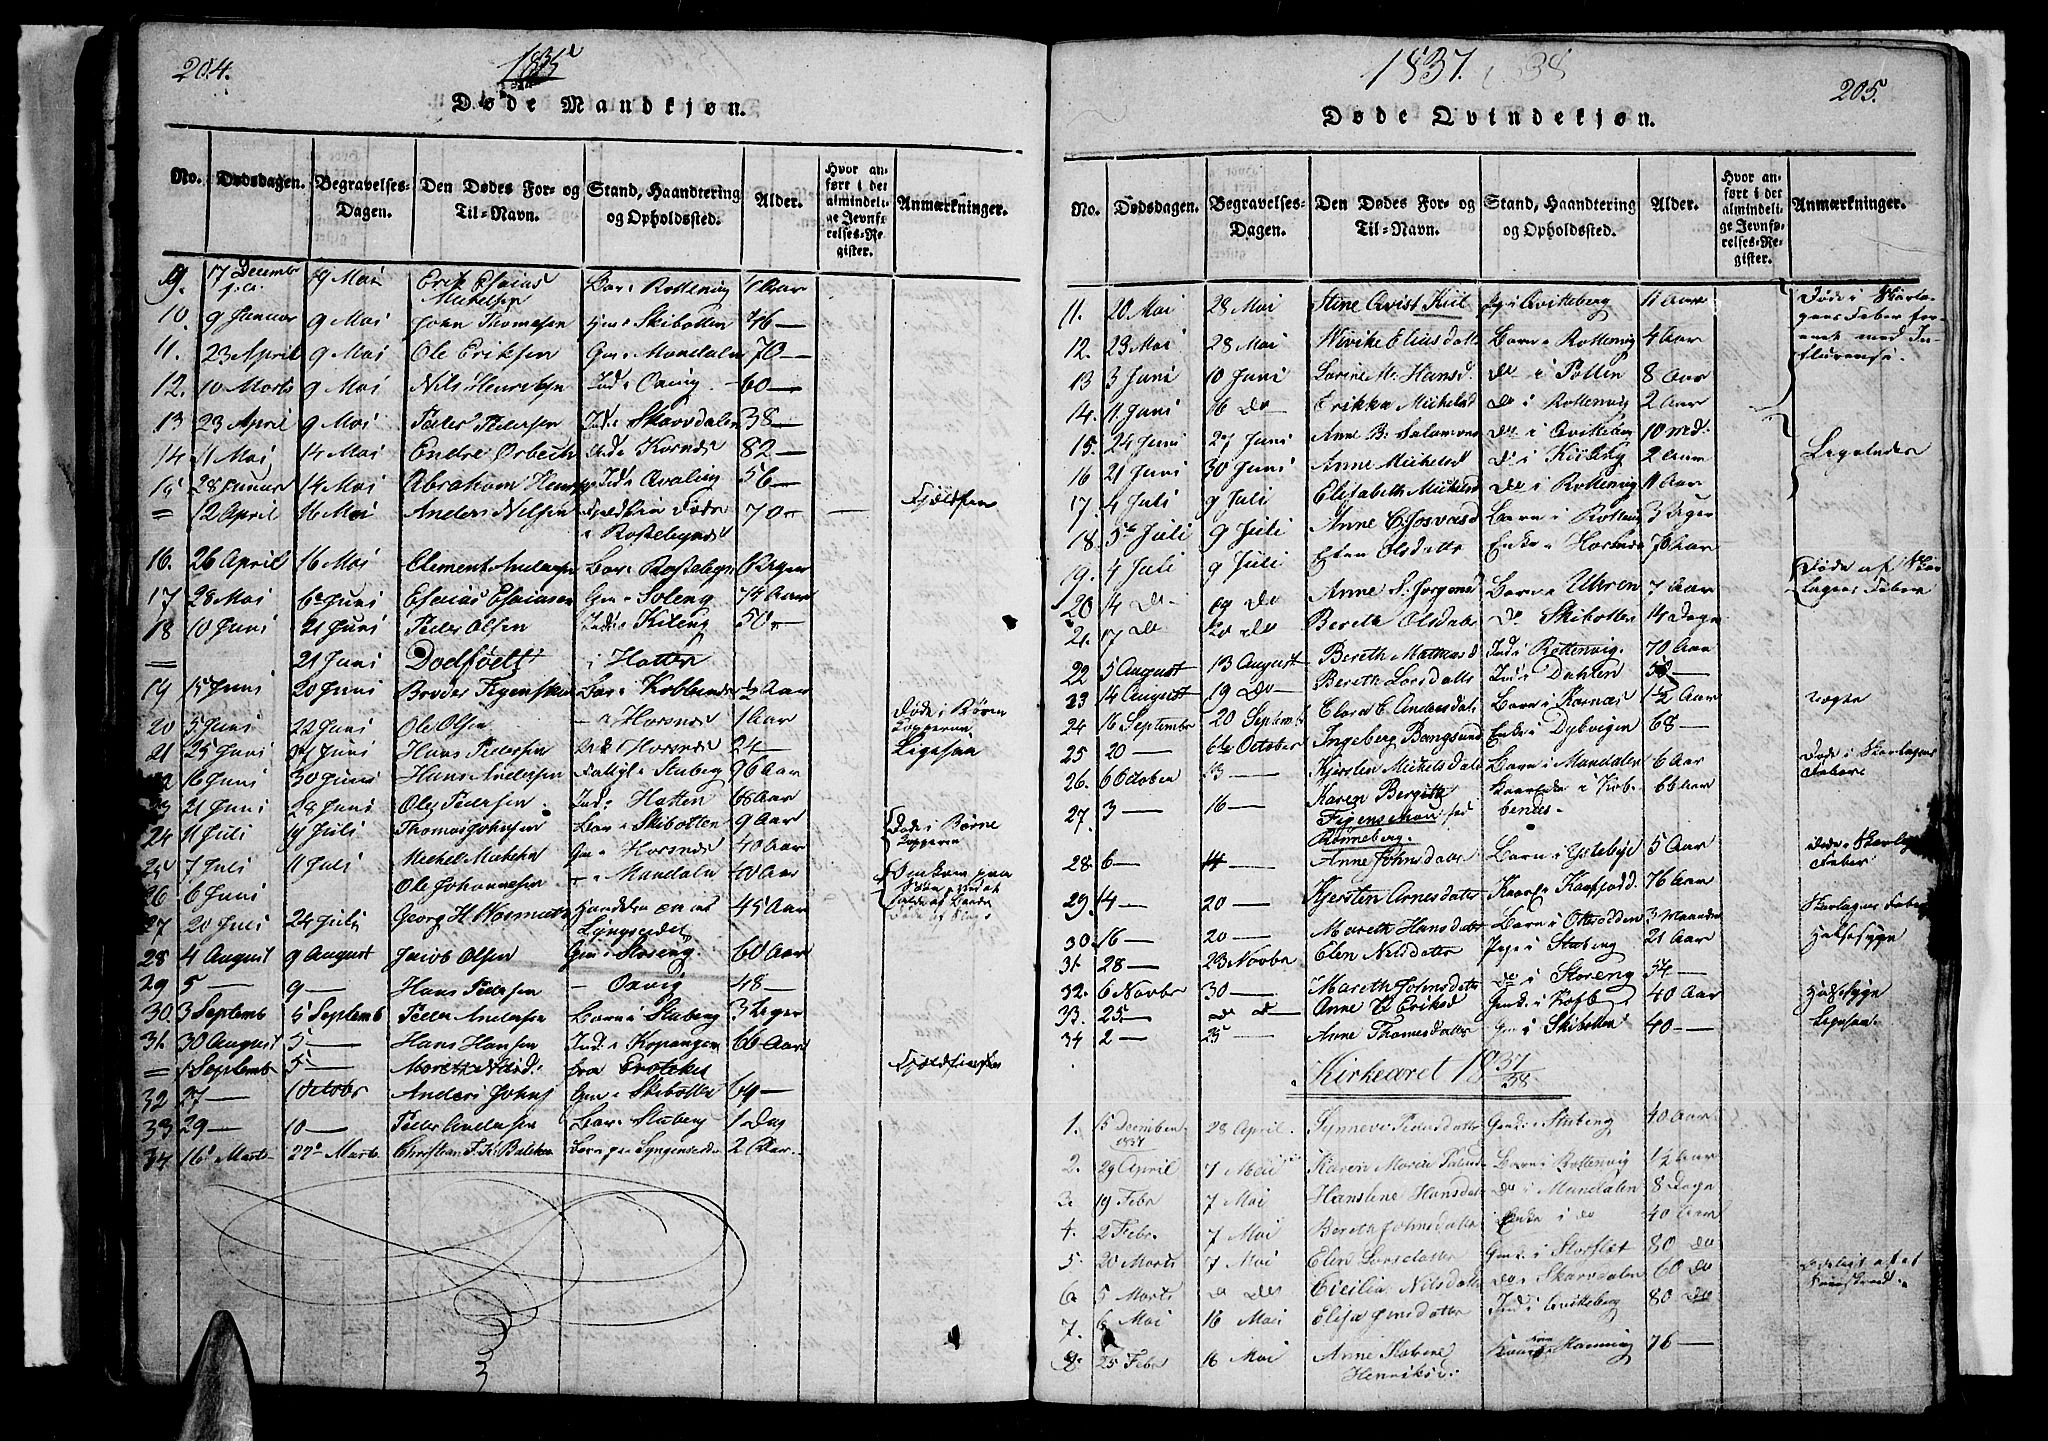 204.
1835
Døde Mandkjøn.
No.
Dødsdagen.
Begravelses-Dagen.
Den Dødes For- og Til-Navn.
Stand, Haandtering og Opholdssted.
Alder.
Hvor anført i det almindelige Jevnførelses-Register.
Anmærkninger.
9. 17 Decembr 19 Mai Erik Esaias Michelsen Barn i Rottenvig Aar
10. 9 Januar 9 Mai John Thomesen Gm i Skibotten 46 —
11. 23 April 9 Mai Ole Eriksen Gm i Mandalen 70 —
12. 10 Marts 9 Mai Nils Henriksen Ind i 60 —
13 23 April 9 Mai Peder Pedersen Ind i Skarvdalen 38 —
14 11 Mai 14 Mai Endre Orbech Ind i Kornæs 82 —
15 28 Januar 14 Mai Abraham Henr Ind i 56 —
= 12 April 16 Mai Anders Nilsen Fjeldfin Føde i Rostebynd 70 — Fjeldfin
16. 26 April 16 Mai Clement Andersen Barn i Rostebyn 6 Uger
17 28 Mai 6te Juni Esaias Esaiasen Gm i Soleng 74 Aar
18 10 Juni 21 Juni Peder Olsen Ind i Kileng 50 —
= 21 Juni Dødfødt i Hatten
19 15 Juni 20 Juni Broder Figenskau Barn i Kobbenes ½ Aar
20 5 Juni 22 Juni Ole Olsen — i Horsnes 1 Aar Døde i Børnekopperne
21 25 Juni 31 Juni Hans Pedersen Ind i Horsnes 24 — Ligesaa
22 16 Juni 30 Juni Hans Andersen Fattigl i Stuberg 96 Aar
23 21 Juni 28 Juni Ole Pedersen Ind i Hatten 68 Aar
24 11 Juli 19 Juli Thomas Johnsen Barn i Skibotten 9 Aar Døde i Børnekopperne
25 7 Juli 11 Juli Michel Michels Gm i Horsnes 40 Aar
26 6 Juni Ole Johannesen — i Mandalen 40 Aar
27 20 Juni 24 Juli Georg H. Wormuth Handelsm paa Lyngseidet 45 Aar
28 4 August 9 August Jacob Olsen Gm i Storeng 60 Aar
29 5 — 9 — Hans Pedersen — Oxvig 48 —
30 3 Septemb 5 Septemb Peder Andersen Barn i Stuberg 3 Uger
31 30 August 5 — Hans Hansen Ind i Kopangen 66 Aar
= 1 Septemb 5 — fra Fjeldfinske
32 27 — 1 Octobr Anders Johns Gm i Skibotten 69 —
33 29 — 10 — Peder Andersen Barn i Stuberg 1 Dag
34 16 Marts 22 Marts Christian F. Fr. Barn paa Lyngseidet 2 Aar
1837. 1838
205.
Døde Qvindekjøn.
No.
Dødsdagen.
Begravelses-Dagen.
Den Dødes For- og Til-Navn.
Stand, Haandtering og Opholdssted.
Alder.
Hvor anført i det almindelige Jevnførelses-Register.
Anmærkninger.
11. 20 Mai 28 Mai Stine Qvist Kiil i Qvikeberg 11 Aar Døde i Skarlagens Feber forenet med Influenza.
12. 23 Mai 28 Mai Nirike Eliasdatter Barn i Rottenvig 4 Aar
13 3 Juni 10 Juni Lorine M. Hansd do i Pollen 8 Aar
14. 11 Juni 16 do Erikka Michelsd do i Rottenvig 2 Aar
15. 24 Juni 27 Juni Anne B. Salamons do i Qvikeberg 10 md: Ligeledes
16 21 Juni 30 Juni Anne Michelsd do i Kiøbbg 2 Aar
17. 4 Juli 9 Juli Elisabeth Michelsd do i Rottenvig 11 Aar
18. 5te Juli 9 Juli Anne C. Josvasd Barn i Rottenvig 3 Uger
19. 4 Juli 9 Juli Elen Olsdatter Enke i Horsnes 76 Aar
20 14 do 19 do Anne S. Jørgensd Barn i Uhren 7 Aar Døde af Skarlagens Feber
21. 17 do 20 do Bereth Olsdatter do Skibotten 14 Dage
22 5 August 13 August Bereth Mathiasd Ind i Rottenvig. 70 Aar
23 14 August 19 do — Bereth Larsdatter Ind i Dahlen 50
24 16 Septembr 20 Septembr Elara E. Andersdatter Barn i Kornæs 1½ Aar
25 20 — 6te October Ingeberg Bangsund Enke i Dybvigen 68 —
26. 6 October 13 — Kjersten Michelsdatter Barn i Mandalen 6 Aar Døde i Skarlagens Feber
27. 3 — 16 — Karen Bergitte Figenschou fød Rønneberg. i Kobbenes. 66 Aar
28. 6 — Anne Johnsdatter Barn i 5 Aar Døde i Skarlagens Feber
29. 14 — 20 — Kjersten Arnesdatter i Kaafjord 76 Aar Skarlagens Feber
30. 16 — 20 — Mareth Hansdatter Barn i Otteradden 3 Maaneder
31. 28 — 23 Novbr Elen Nilsdatter Pige i Stuberg 21 Aar Halsesyge
32. 6 Novbr 30 — Mareth Johnsdatter do i Storeng 54 —
33. 25 — do do — Anne B Eriksd i 40 Aar Halsesyge
34 2 — 25 — Anne Thomesdatter Gm i Skibotten 40 — Ligesaa
Kirkeaaret 1837/38
1. 15 Decemben 1837 28 April. Synneve Pedersdatter i Stuberg 40 Aar
2. 29 April 7 Mai Karen Maria Barn i Rottenvig 1½ Aar
3. 19 Febr 7 Mai Hanslene Hansdatter do i Mandalen 8 Dage
4. 2 Febr. 7 Mai Bereth Johnsdatter Enke i do 40 Aar
5. 20 Marts 7 Mai Elen Larsdatter i Storslet 80 do
6. 5 Marts do do Cicilia Nilsdatter do i Skarvdalen 60 do
7. 6 Mai 16 Mai Elisa Jensdatter Ind i Qvikeberg 80 do
8. 25 Febr 16 Mai Anne Sabene Henriksd. 76 —